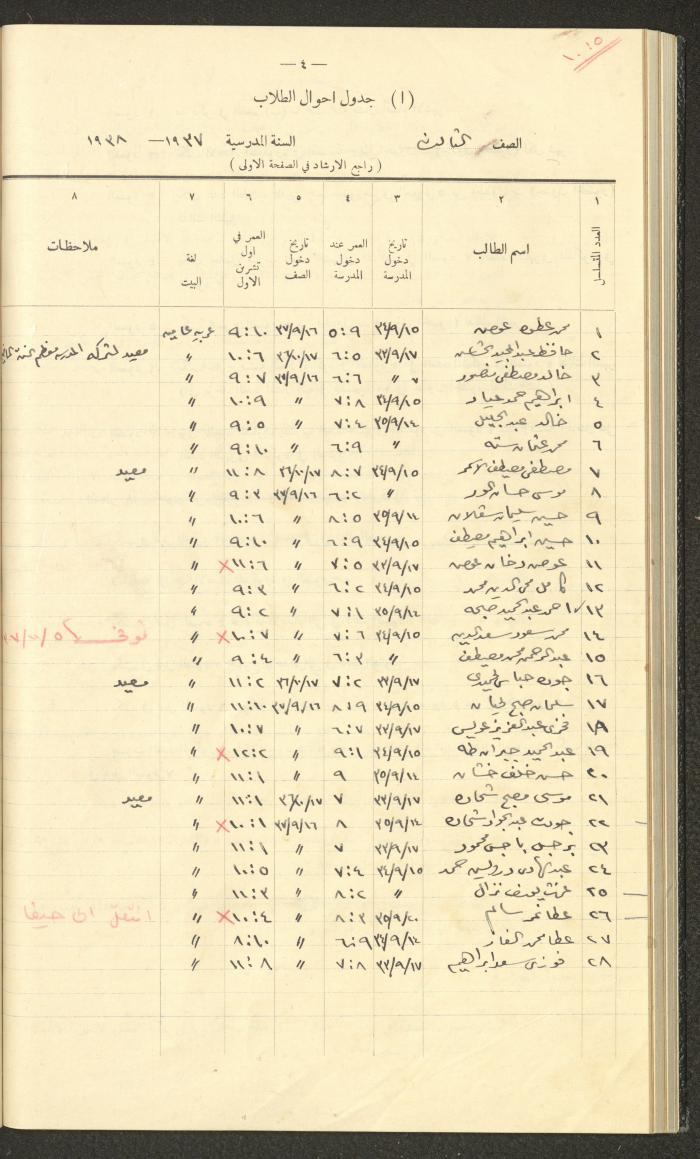 ١٠:٥
— ٤ —
(١) جدول احوال الطلاب
الصف الثالث السنة المدرسية ١٩٣٧ — ١٩٣٨
( راجع الارشاد في الصفحة الاولى )
١ ٢ ٣ ٤ ٥ ٦ ٧ ٨
العدد المتسلسل اسم الطالب تاريخ دخول المدرسة العمر عند دخول المدرسة تاريخ دخول الصف العمر في اول تشرين الاول لغة البيت ملاحظات
١ محمد عطوه عوض ٣٤/٩/١٥ ٥:٩ ٣٧/٩/١٦ ٩:١٠ عربيه عاميه
٢ حافظ عبد المجيد ٣٢/٩/١٧ ٦:٥ ٣٦/١٠/١٧ ١٠:٦ " معيد لتركه المدرسه معظم السنة
٣ خالد مصطفى منصور " ٦:٦ ٣٧/٩/١٦ ٩:٧ "
٤ ابراهيم حمد عياد ٣٤/٩/١٥ ٧:٨ " ١٠:٩ "
٥ خالد عبد الجليل ٣٥/٩/١٤ ٧:٤ " ٩:٥ "
٦ محمد عثمان سته " ٦:٩ " ٩:١٠ "
٧ مصطفى مصيطف الاسمر ٣٤/٩/١٥ ٨:٧ ٣٦/١٠/١٧ ١١:٨ " معيد
٨ موسى حسان " ٦:٢ ٣٧/٩/١٦ ٩:٣ "
٩ حسين سليمان سقلان ٣٥/٩/١٤ ٨:٥ " ١٠:٦ "
١٠ حسين ابراهيم مصيطف ٣٤/٩/١٥ ٦:٩ " ٩:١٠ "
١١ عوض دخان عوض ٣٣/٩/١٧ ٧:٥ " ١١:٦ × "
١٢ كامل محي الدين محمد ٣٤/٩/١٥ ٦:٢ " ٩:٣ "
١٣ احمد عبد الحميد صبحه ٣٥/٩/١٤ ٧:١ " ٩:٢ "
١٤ محمد سعود سعد الدين ٣٤/٩/١٥ ٧:٦ " ١٠:٧ × " توفي
١٥ عبد الرحمن محمد مصيطف " ٦:٣ " ٩:٤ "
١٦ جوده عباس الحميدي ٣٣/٩/١٧ ٧:٢ ٣٦/١٠/١٧ ١١:٢ " معيد
١٧ سليمان صبح ٣٤/٩/١٥ ٨:٩ ٣٧/٩/١٦ ١١:١٠ "
١٨ فخري عبد العزيز عريس ٣٣/٩/١٧ ٦:٧ " ١٠:٧ "
١٩ عبد الحميد جبران طه ٣٤/٩/١٥ ٩:١ " ١٢:٢ × "
٢٠ حسن خلف خشان ٣٥/٩/١٤ ٩ " ١١:١ "
٢١ موسى مصبح شحاده ٣٣/٩/١٧ ٧ ٣٦/١٠/١٧ ١١:١ " معيد
٢٢ جودت عبد الجواد شحاده ٣٥/٩/١٤ ٨ ٣٧/٩/١٦ ١٠:١ × "
٢٣ برجس باجس محمود ٣٣/٩/١٧ ٧ " ١١:١ "
٢٤ عبد الهادي درويش حمد ٣٤/٩/١٥ ٧:٤ " ١٠:٥ "
٢٥ عزت يوسف نزال " ٨:٢ " ١١:٣ "
٢٦ عطا نمر سالم ٣٥/٩/٢٠ ٨:٣ " ١٠:٤ × " انتقل الى حيفا
٢٧ عطا محمد الفار ٣٤/٩/١٤ ٦:٩ " ٨:١٠ "
٢٨ فوزي سعد ابراهيم ٣٣/٩/١٧ ٧:٨ " ١١:٨ "